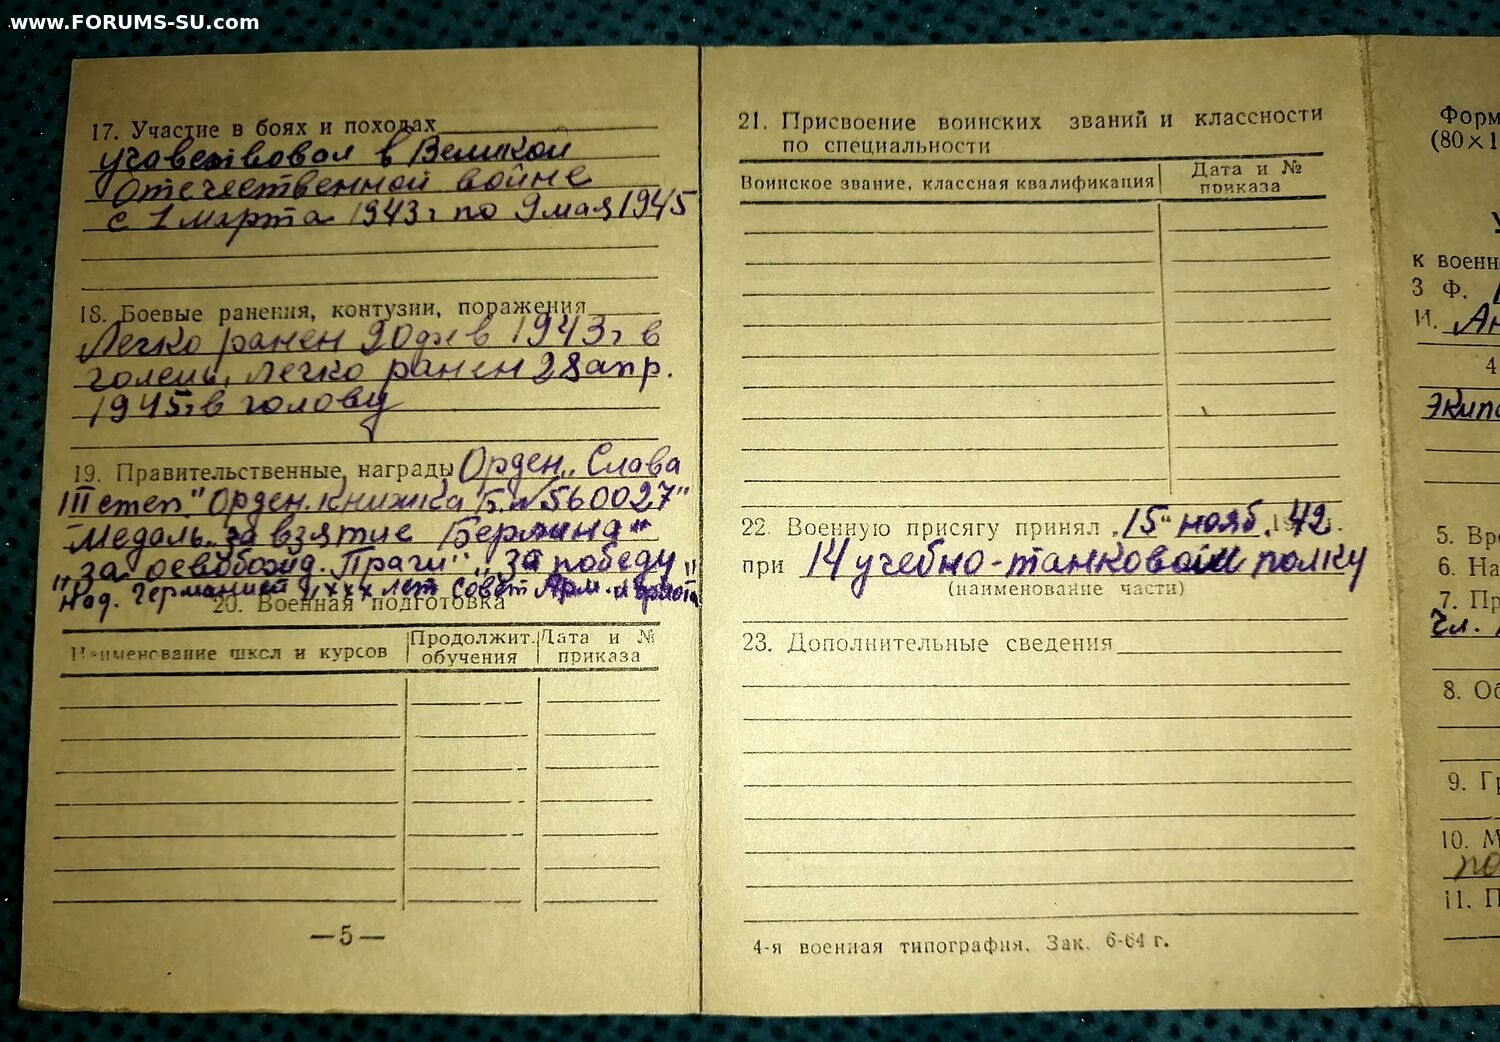 www.FORUMS-SU.com
17. Участие в боях и походах
участвовал в Великой
Отечественной войне
с 1 марта 1943г по 9 мая 1945
18. Боевые ранения, контузии, поражения
Легко ранен 20 фев 1943г в
голень, легко ранен 28 апр.
1945г в голову
19. Правительственные награды Орден „Слава
III степ" Орден. книжка Б. №560027"
Медаль „за взятие Берлина"
"за освобожд. Праги" „за победу
над. Германией" „XXX лет Совет Арм. и флота
20. Военная подготовка
Наименование школ и курсов
Продолжит. обучения
Дата и № приказа
—5—
21. Присвоение воинских званий и классности
по специальности
Воинское звание, классная квалификация
Дата и №
приказа
22. Военную присягу принял „15" нояб. 1942г.
при 14 учебно-танковом полку
(наименование части)
23. Дополнительные сведения
4-я военная типография. Зак. 6-64 г.
Форм
(80×1
У
к военн
3 Ф.
И. Ан
4
экипа
5. Вр
6. На
7. Пр
Чл.
8. Об
9. Гр
10. М
по
11. П